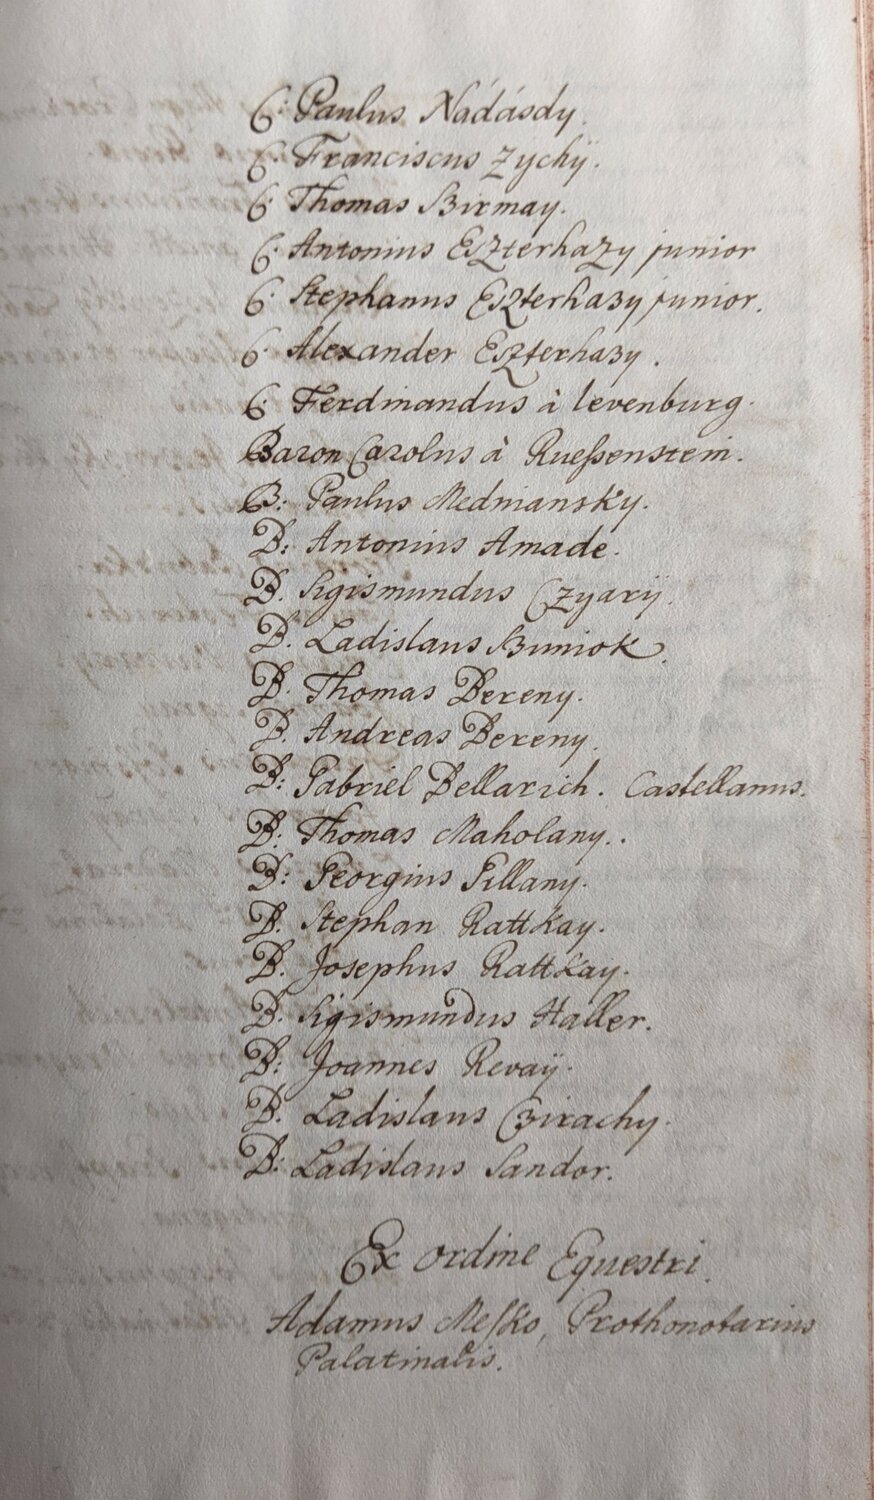 C: Paulus Nádásdy.
C: Franciscus Zychÿ.
C: Thomas Szirmay.
C: Antonius Eszterhazy junior
C: Stephanus Eszterhazy junior.
C: Alexander Eszterhazy.
C: Ferdinandus à Levenburg.
Baron Carolus à Rueßenstein.
B: Paulus Medniansky.
B: Antonius Amade.
B. Sigismundus Czyarij.
B. Ladislaus Szuniok.
B. Thomas Bereny.
B. Andreas Bereny.
B: Gabriel Bellarich. Castellanus.
B: Thomas Maholany.
B: Georgius Gillany.
B. Stephan Rattkay.
B. Josephus Rattkay.
B. Sigismundus Haller.
B: Joannes Revaÿ.
B. Ladislaus Czirachy.
B: Ladislaus Sandor.
Ex ordine Equestri.
Adamus Mesko, Prothonotarius
Palatinalis.